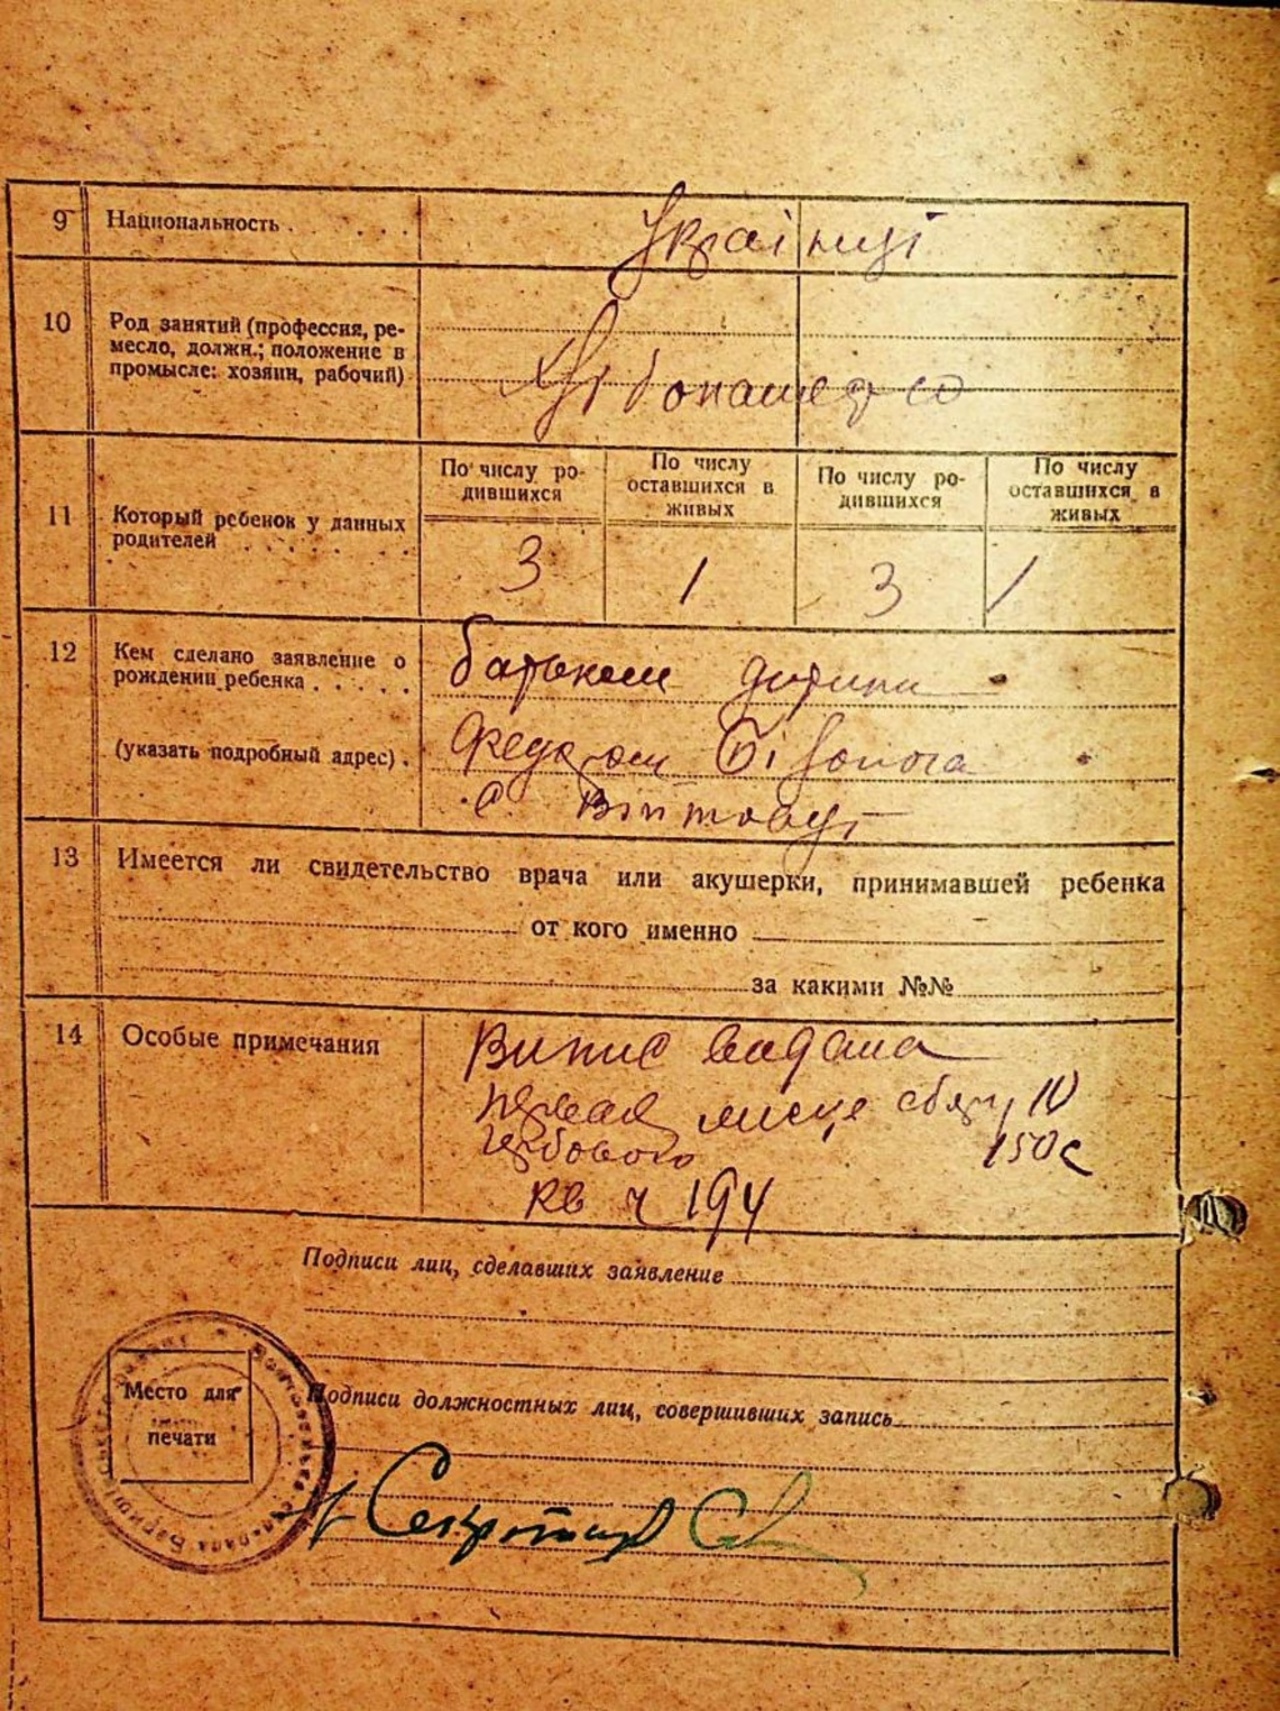 9 Национальность . . . . .
Українці
10 Род занятий (профессия, ре-
месло, должн.; положение в
промысле: хозяин, рабочий)
Хлібопашество
11 Который ребенок у данных
родителей . . . . . .
По числу ро-
дившихся
По числу
оставшихся в
живых
По числу ро-
дившихся
По числу
оставшихся в
живых
3 1 3 1
12 Кем сделано заявление о
рождении ребенка . . . . .
(указать подробный адрес) .
батьком дитини
Федором
с. Війтовці
13 Имеется ли свидетельство врача или акушерки, принимавшей ребенка
от кого именно
за какими №№
14 Особые примечания
Випис видана
150 с
кв ч 194
Подписи лиц, сделавших заявление
Место для
печати
Подписи должностных лиц, совершивших запись
Секретар